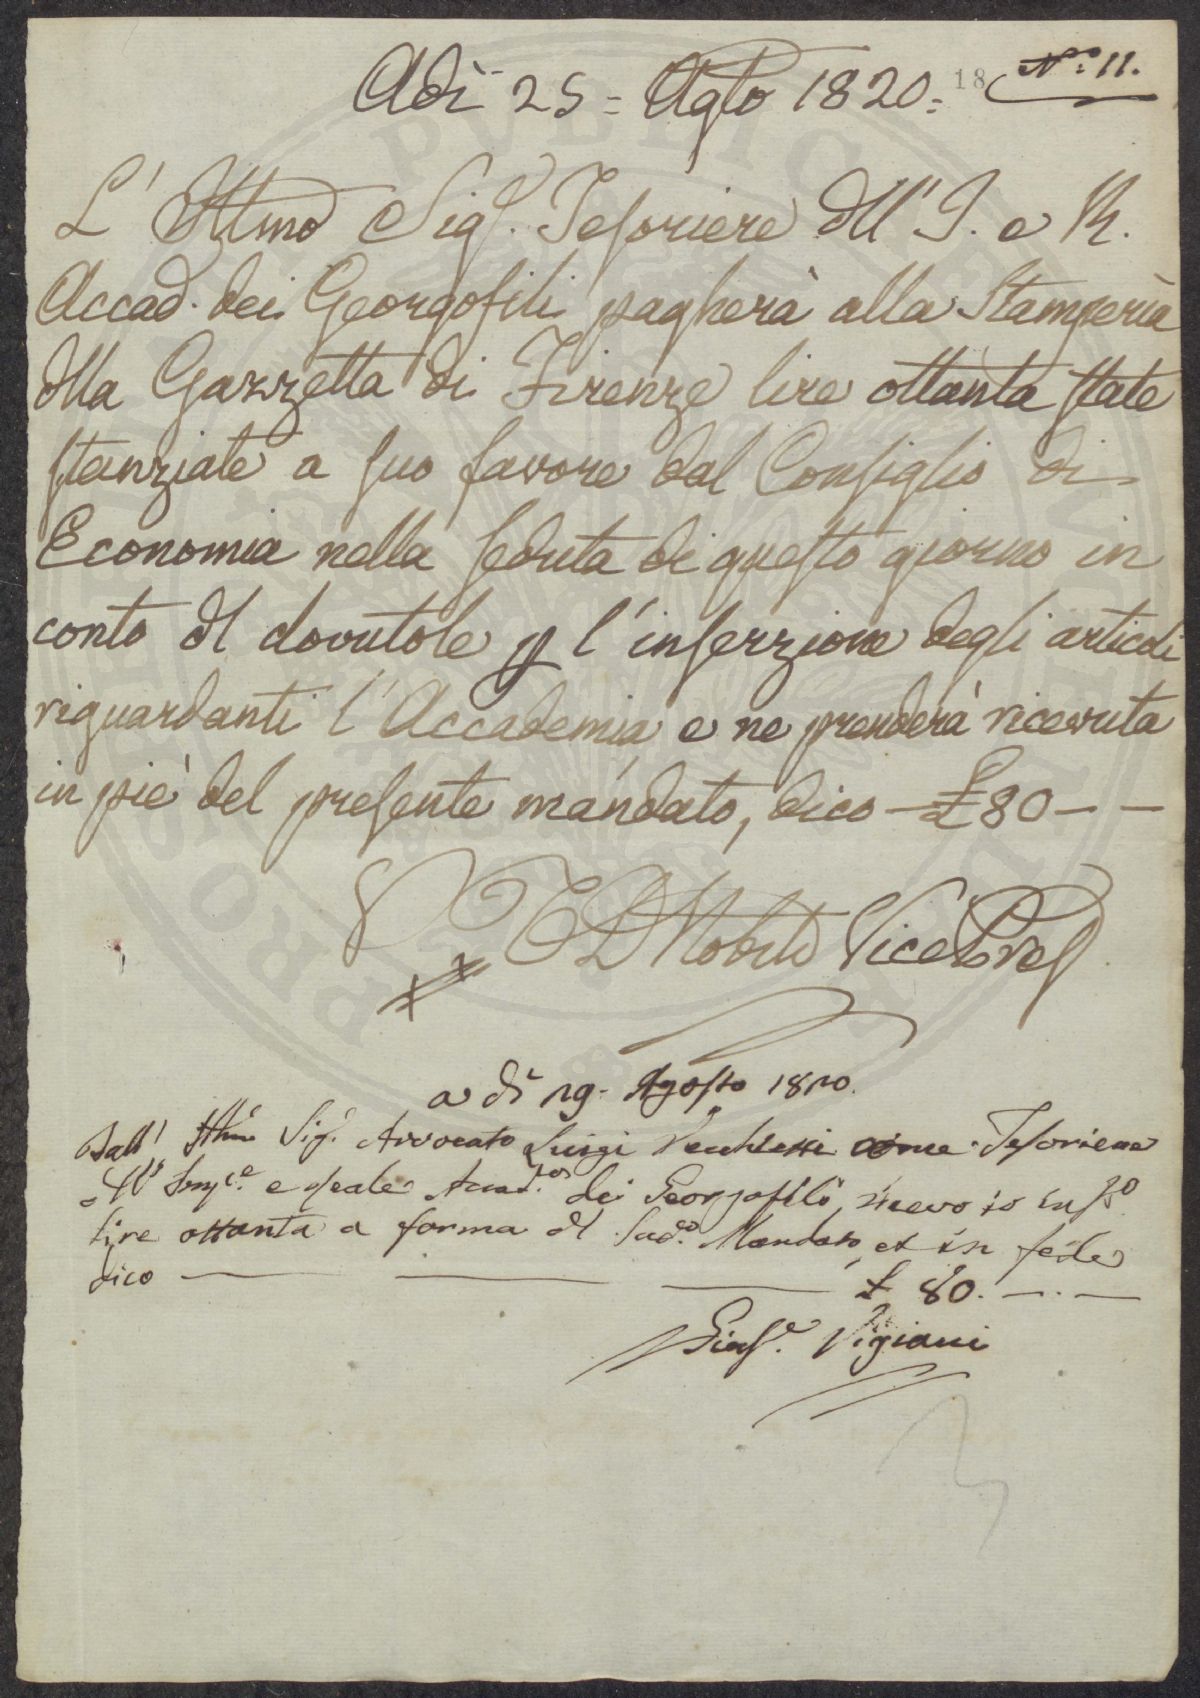 N.º 11.
18
Adì 25 = Agto 1820 =
L' Illmo Sigr. Tesoriere dll' I. e R.
Accad. dei Georgofili pagherà alla Stamperia
dlla Gazzetta di Firenze lire ottanta state
stanziate a suo favore dal Consiglio di
Economia nella seduta di questo giorno in
conto dl dovutole p l'inserzione degli articoli
riguardanti l'Accademia, e ne prenderà ricevuta
in piè del presente mandato, dico — £ 80 — —
Nobili Vice Pres
a dì 29. Agosto 1820.
Dall' Illmo Sigr. Avvocato Luigi come Tesoriere
dll' Impe. e reale Accad. dei Georgofili, ricevo io infº
lire ottanta a forma dl Sudº. Mandato, et in fede
dico — — — £ 80. — . —
Giuse. Vigiani